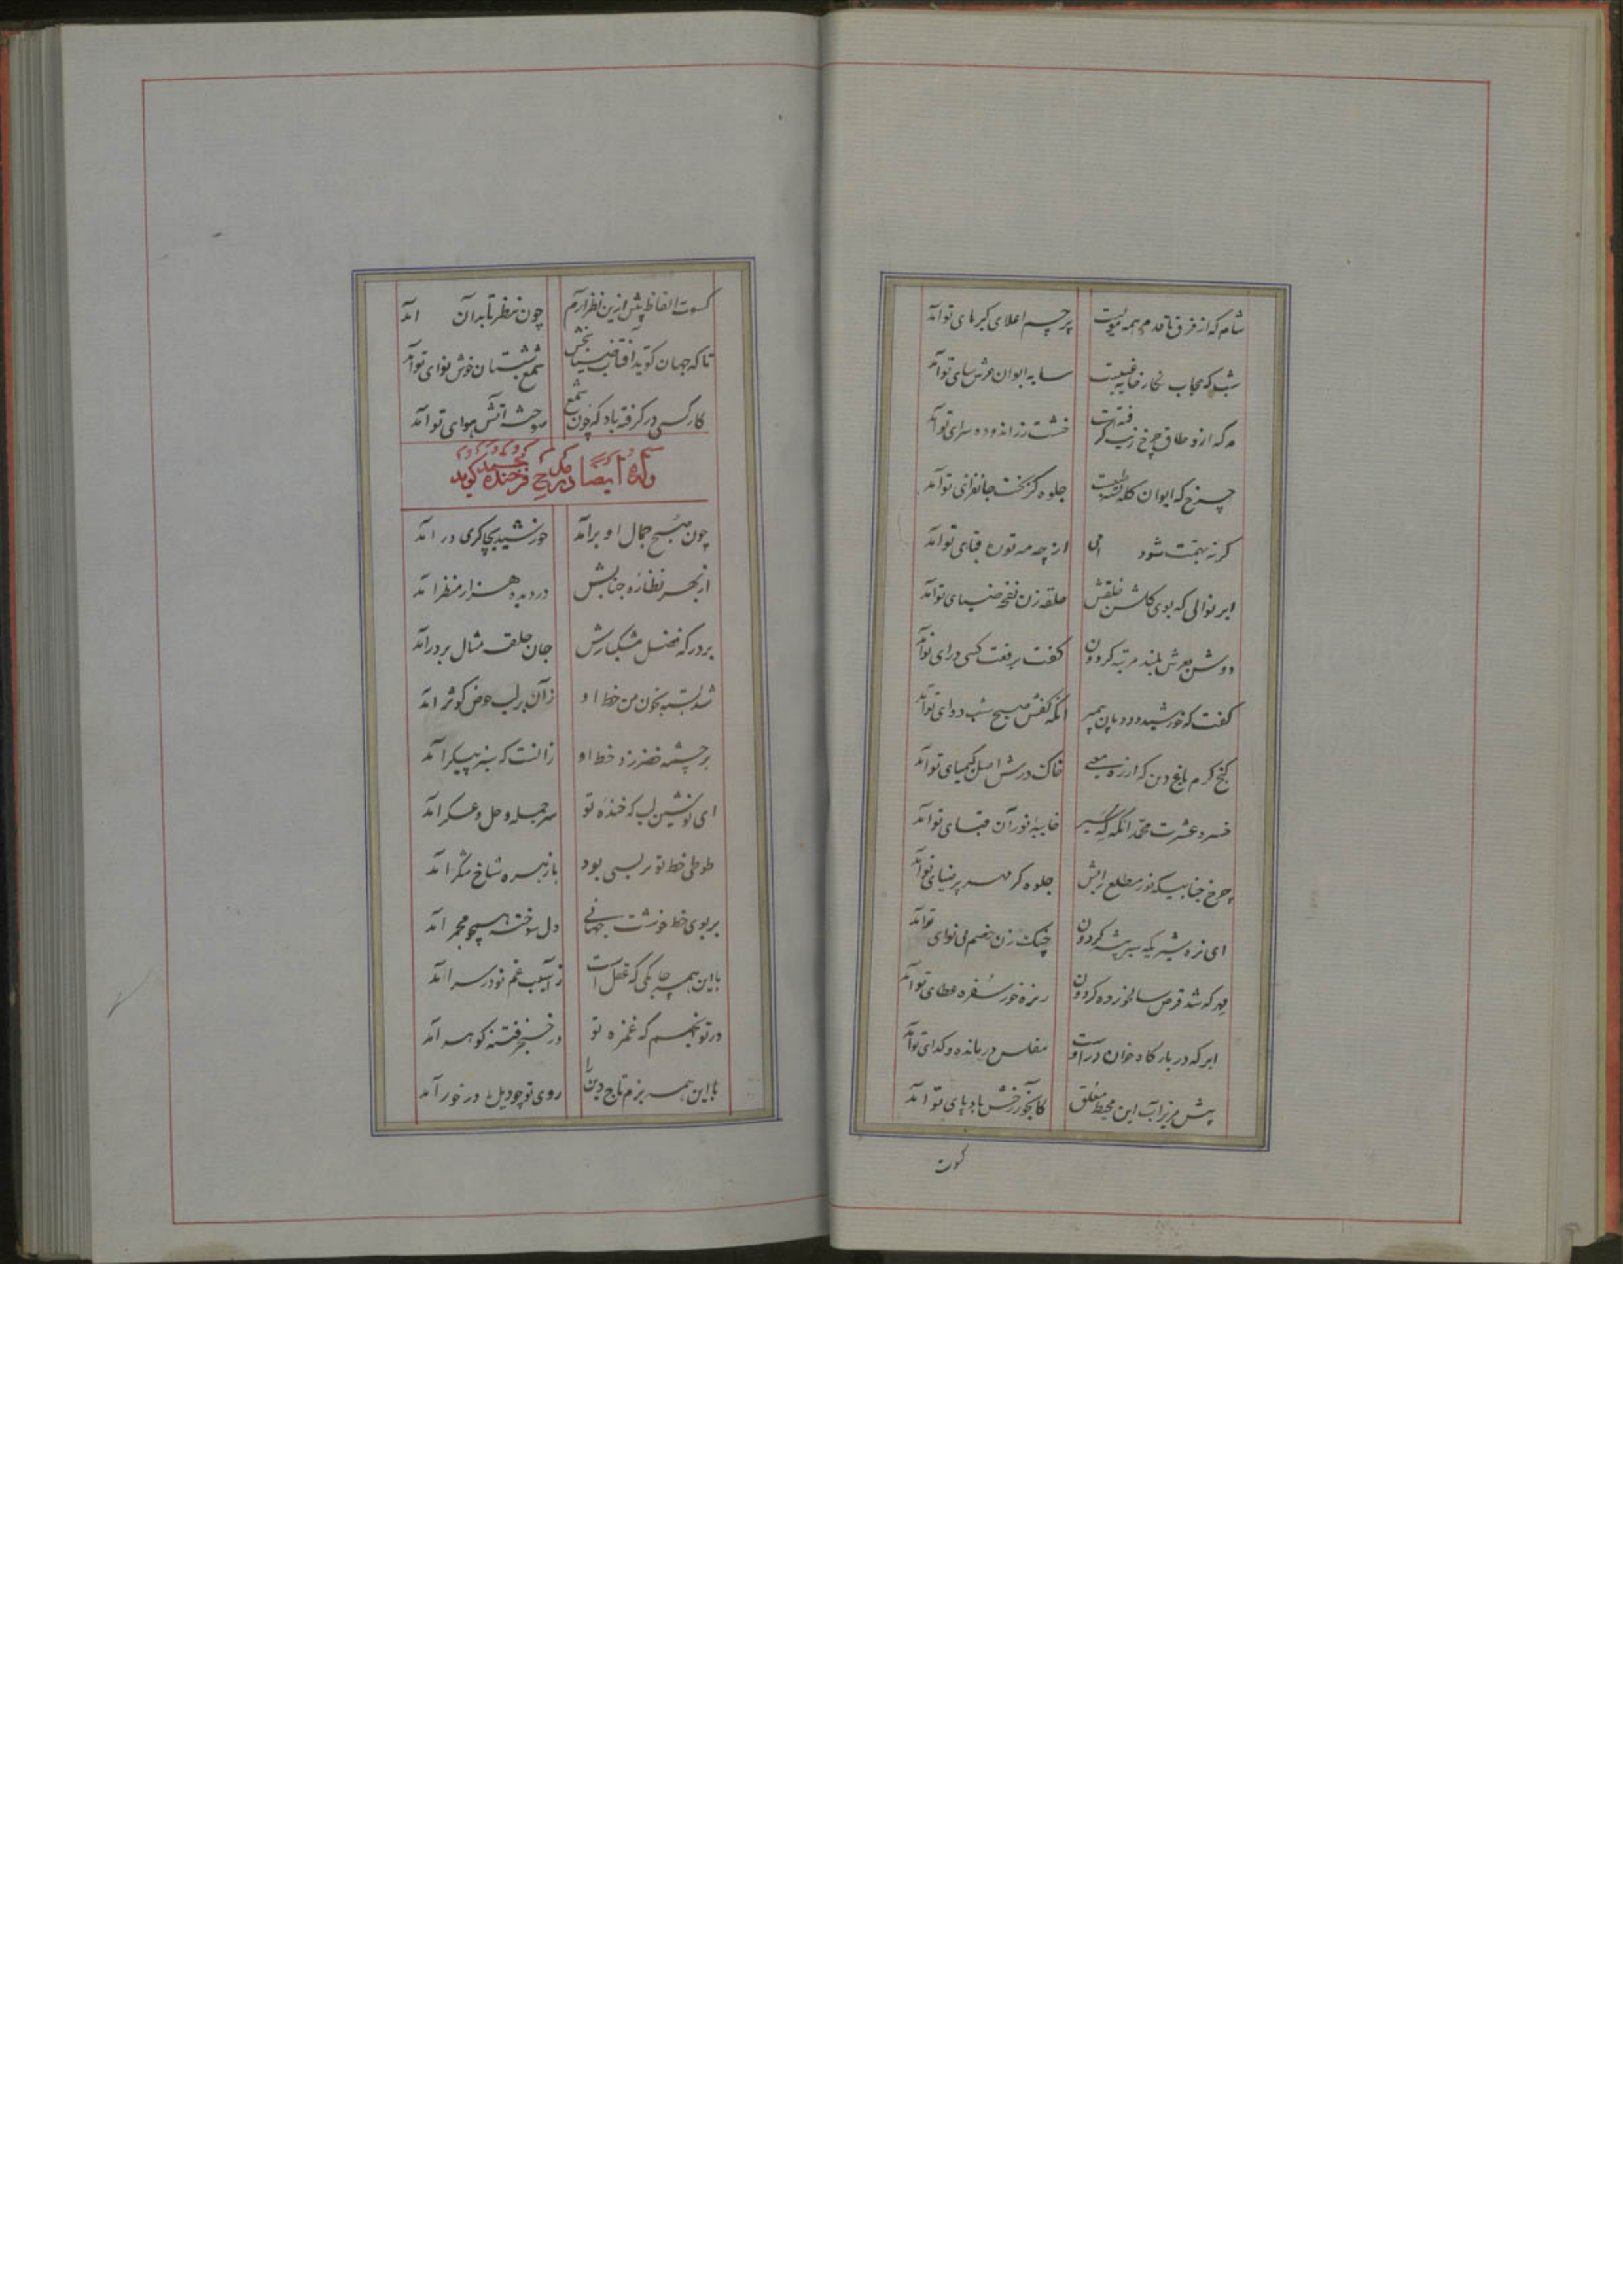 شام که از فرق تا قدم همه مویست پرچم اعلای کبریای تو آمد
شب که حجاب نگارخانه غیبست سایه ایوان عرش سای تو آمد
مه که ازو طاق چرخ زیب گرفتست خشت زر اندود سرای تو آمد
چرخ که ایوان کله جلوه گر بخت جانفزای تو آمد
گر نه بهمت شود از چه مه تو قبای تو آمد
ابر نوالی که بوی گلشن خلقش حلقه زن نفحه ضیای تو آمد
دوش بعرش بلند مرتبه گردون گفت برفعت کسی ورای تو آمد
گفت که خورشید دودمان پیمبر آنکه کفش مسیح شب دوای تو آمد
گنج کرم تاج دین که از ره معنی خاک درش اصل کیمیای تو آمد
خسرو عشرت محمد آنکه خانه نور آن قبای تو آمد
چرخ جنابیکه نور مطلع رایش جلوه گر مهر پر ضیای تو آمد
ای نره شیریکه شیر بیشه گردون چنگ زن خصم بی نوای تو آمد
مهر که شد قرص سالخورده گردون ریزه خور سفره عطای تو آمد
ابر که در بارگاه خوان مفلس درمانده و گدای تو آمد
پیش مریز آب این محیط معلق کابخور رخش بادپای تو آمد
کسوت
کسوت الفاظ پیش ازین نظر آرم چون نظر تا بدان آمد
تا که جهان گوید آفتاب ضیا بخش شمع شبستان خوش نوای تو آمد
کار کسی در گرفته باد که چون شمع سوخته آتش هوای تو آمد
وله ایضا در مدح فرخنده گوید
چون صبح جمال او برآمد خورشید بچاکری در آمد
از بهر نظاره جنابش در دیده هزار منظر آمد
بر درگه فضل مشکبارش جان حلقه مثال بر در آمد
شد تشنه بخون من خط او زان بر لب حوض کوثر آمد
بر چشمه خضر زد خط او زانست که سبز پیکر آمد
ای نوشین لب که خنده تو سرجمله و حل و عسکر آمد
طوطی خط تو بر بسی بود با زهره شاخ شکر آمد
بر بوی خط خوشت جهانی دل سوخته همچو مجمر آمد
با این همه چابکی که عقل است ز آسیب غم تو در سر آمد
در تو نجهم که غمزه تو در خنجر فتنه گوهر آمد
با این همه بزم تاج دین را روی تو چو دیل در خور آمد